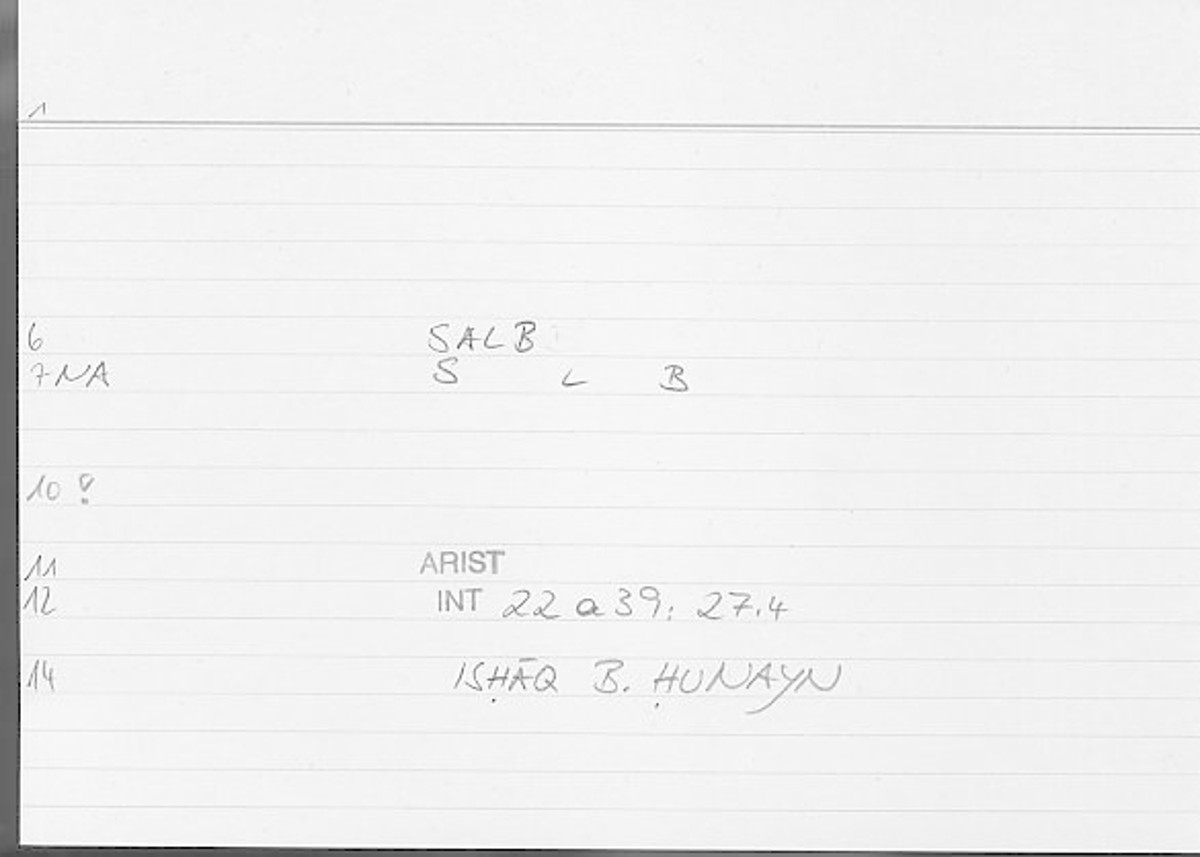 1
6 SALB
7 NA S L B
10 ?
11 ARIST
12 INT 22 a 39; 27.4
14 ISḤĀQ B. ḤUNAYN